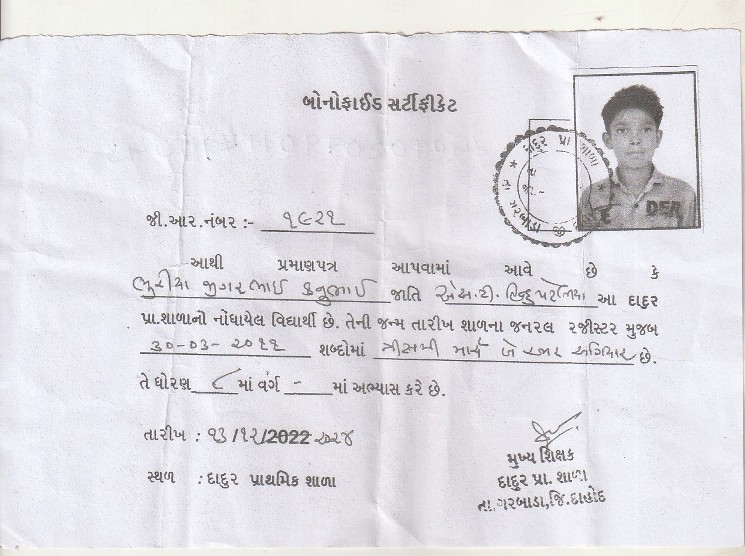 બોનોફાઈડ સર્ટીફીકેટ
દાદુર પ્રા શાળા
તા ગરબાડા જી
DER
જી.આર.નંબર :- ૧૯૨૧
આથી પ્રમાણપત્ર આપવામાં આવે છે કે
ભુરીયા જીગરભાઈ કનુભાઈ જાતિ એસ.ટી. હિન્દુ પટેલિયા આ દાદુર
પ્રા.શાળાનો નોંધાયેલ વિદ્યાર્થી છે. તેની જન્મ તારીખ શાળના જનરલ રજીસ્ટર મુજબ
૩૦-૦૩-૨૦૧૧ શબ્દોમાં ત્રીસમી માર્ચ બે હજાર અગિયાર છે.
તે ધોરણ ૮ માં વર્ગ - માં અભ્યાસ કરે છે.
તારીખ : ૧૩/૧૨/2022 ૨૦૨૪
સ્થળ : દાદુર પ્રાથમિક શાળા
મુખ્ય શિક્ષક
દાદુર પ્રા. શાળા
તા.ગરબાડા,જિ.દાહોદ